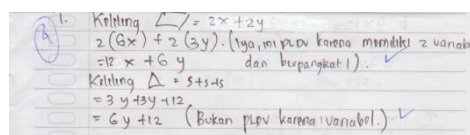 1. Keliling ▱ = 2x + 2y
2(6x) + 2(3y). (Iya, ini PLDV karena memiliki 2 variabel
= 12x + 6y dan berpangkat 1).
Keliling △ = s+s+s
= 3y + 3y + 12
= 6y + 12 (Bukan PLDV karena 1 variabel.)